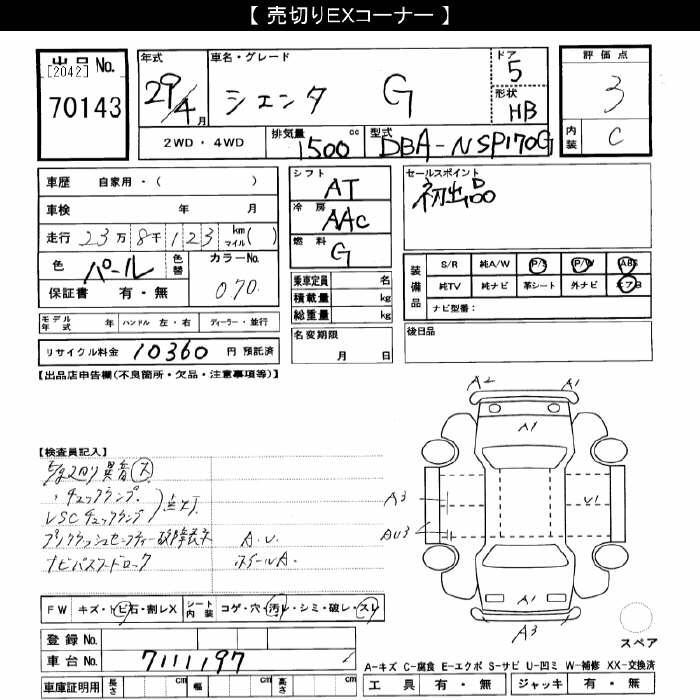 【 売切りEXコーナー 】
出品 No.
[2042]
70143
年式
29/4月
車名・グレード
シエンタ G
ドア
5
形状
HB
評価点
3
内装
C
2WD・4WD
排気量
1500 cc
型式
DBA-NSP170G
車歴 自家用・( )
車検 年 月
走行 23万8千123 km マイル( )
色 パール 色替
カラーNo.
070
保証書 有・無
モデル年式 年 ハンドル 左・右 ディーラー・並行
リサイクル料金 10360 円 預託済
シフト
AT
冷房
AAC
燃料
G
乗車定員 名
積載量 kg
総重量 kg
名変期限
月 日
セールスポイント
初出品
装備品
S/R 純A/W P/S P/W ABS
純TV 純ナビ 革シート 外ナビ エアB
ナビ型番:
後日品
【出品店申告欄(不良箇所・欠品・注意事項等)】
【検査員記入】
異音
チェックランプ
VSCチェックランプ 点灯
プリクラッシュセーフティー故障表示
ナビパスワードロック
A.U.
ホイールA.
A2 A1
A1
A3
AU3
U1
A1
A3
スペア
FW キズ・トビ石・割レX シート内装 コゲ・穴・汚レ・シミ・破レ・スレ
登録 No.
車台 No. 7111197
車庫証明用 長さ cm 幅 cm 高さ cm
A-キズ C-腐食 E-エクボ S-サビ U-凹ミ W-補修 XX-交換済
工具 有・無 ジャッキ 有・無